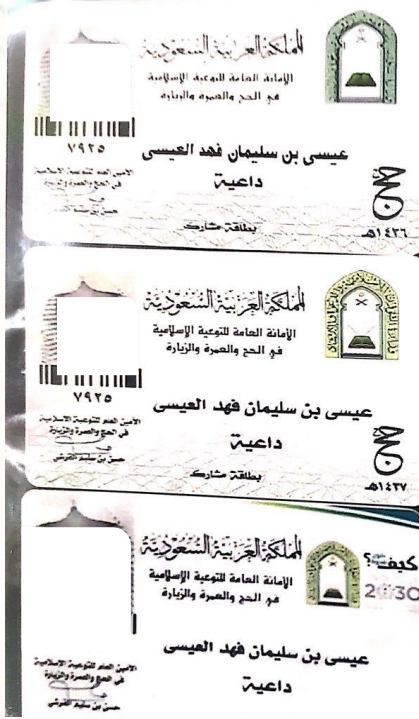 المملكة العربية السعودية
الأمانة العامة للتوعية الإسلامية
في الحج والعمرة والزيارة
٧٩٢٥
عيسى بن سليمان فهد العيسى
داعية
الأمين العام للتوعية الاسلامية
في الحج والعمرة والزيارة
حج
١٤٣٦هـ
بطاقة مشارك
المملكة العربية السعودية
الأمانة العامة للتوعية الإسلامية
في الحج والعمرة والزيارة
٧٩٢٥
عيسى بن سليمان فهد العيسى
داعية
الأمين العام للتوعية الاسلامية
في الحج والعمرة والزيارة
حسن بن سليم القرشي
حج
١٤٣٧هـ
بطاقة مشارك
المملكة العربية السعودية
الأمانة العامة للتوعية الإسلامية
في الحج والعمرة والزيارة
كيف؟
2030
عيسى بن سليمان فهد العيسى
داعية
الأمين العام للتوعية الاسلامية
في الحج والعمرة والزيارة
حسن بن سليم القرشي